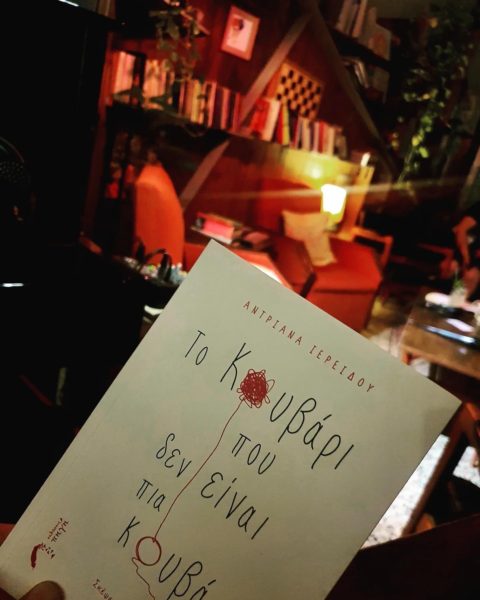 ΑΝΤΡΙΑΝΑ ΙΕΡΕΙΔΟΥ
Το Κουβάρι
που
δεν είναι
πια
Κουβά
πηγή